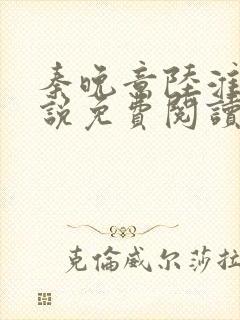 秦晚章陸淮
說免費閱讀
克倫威尔莎拉